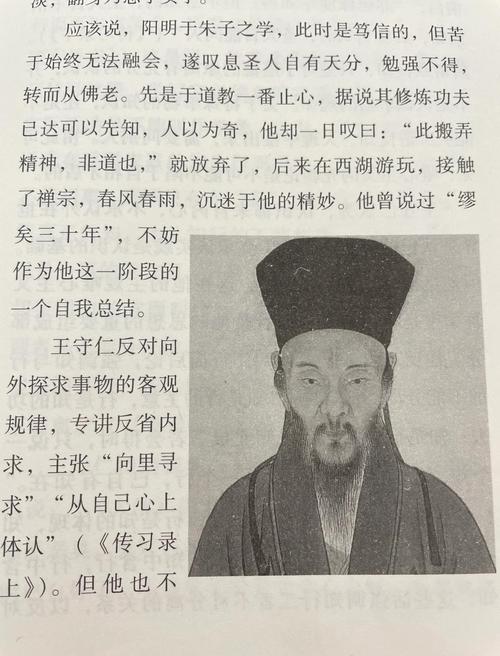 应该说，阳明于朱子之学，此时是笃信的，但苦
于始终无法融会，遂叹息圣人自有天分，勉强不得，
转而从佛老。先是于道教一番止心，据说其修炼功夫
已达可以先知，人以为奇，他却一日叹曰：“此搬弄
精神，非道也。”就放弃了，后来在西湖游玩，接触
了禅宗，春风春雨，沉迷于他的精妙。他曾说过“缪
矣三十年”，不妨
作为他这一阶段的
一个自我总结。
王守仁反对向
外探求事物的客观
规律，专讲反省内
求，主张“向里寻
求”“从自己心上
体认”（《传习录
上》）。但他也不